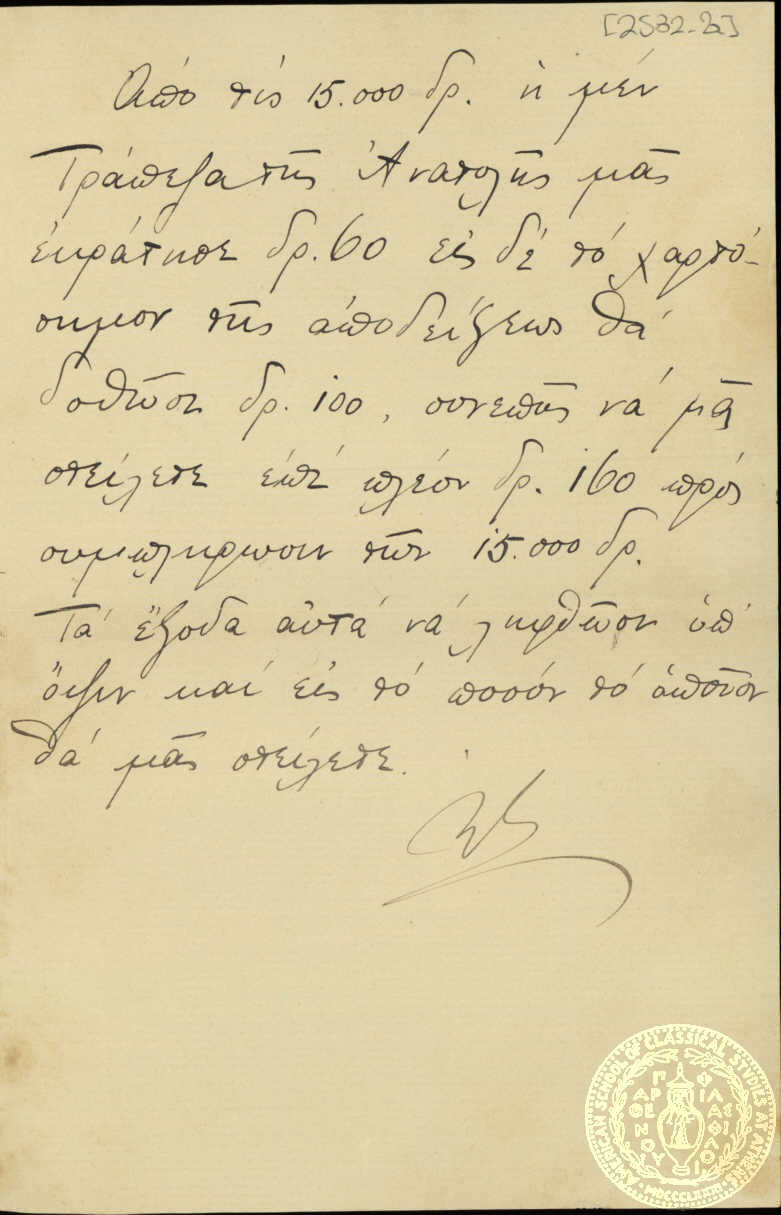 [2532-2]
Ἀπό τίς 15.000 δρ. ἡ μέν
Τράπεζα τῆς Ἀνατολῆς μᾶς
ἐκράτησε δρ. 60 εἰς δέ τό χαρτό-
σημον τῆς ἀποδείξεως θά
δοθῶσι δρ. 100, συνεπῶς νά μᾶς
στείλετε ἐπί πλέον δρ. 160 πρός
συμπλήρωσιν τῶν 15.000 δρ.
Τά ἔξοδα αὐτά νά ληφθῶσιν ὑπ'
ὄψιν καί εἰς τό ποσόν τό ὁποῖον
θά μᾶς στείλετε.
AMERICAN SCHOOL OF CLASSICAL STUDIES AT ATHENS
ΠΑΡΘΕΝΟΥ ΦΙΛΑΣ ΦΙΛΟΙ
MDCCCLXXXI